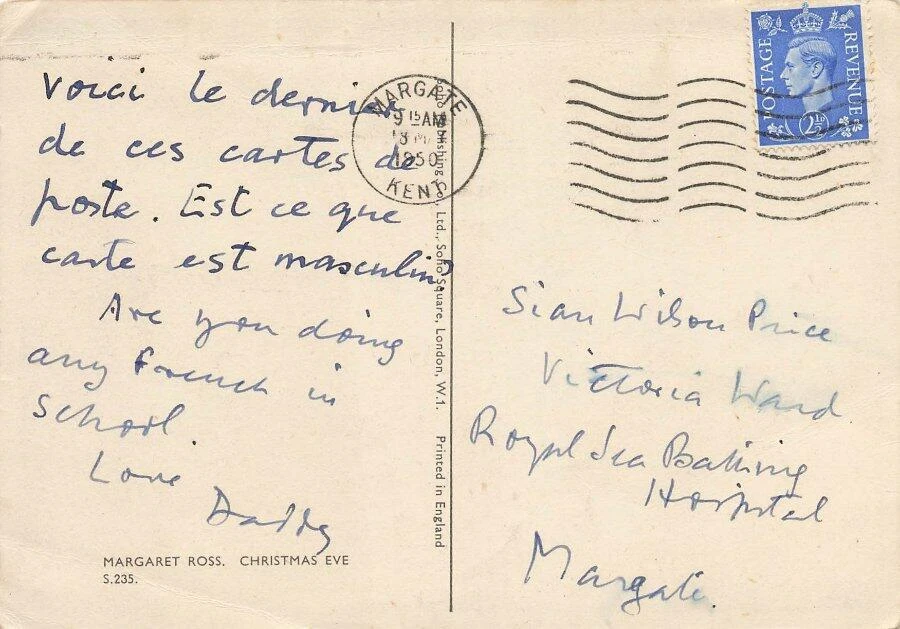 Voici le dernier
de ces cartes de
poste. Est ce que
carte est masculin?
Are you doing
any French in
School.
Love
Daddy
MARGARET ROSS. CHRISTMAS EVE
S.235.
Publishing Co., Ltd., Soho Square, London, W.1. Printed in England
MARGATE
9 15 AM
1950
KENT
POSTAGE REVENUE
2½D
Sian Wilson Price
Victoria Ward
Royal Sea Bathing
Hospital
Margate.